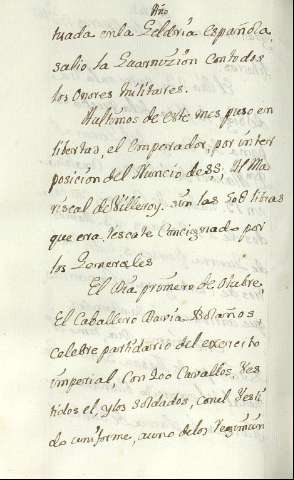 Año
tuada enla Geldria española,
salio la Guarnizion contodos
los onores militares.
Aultimos de este mes puso en
libertad, el Emperador, por inter
posicion del Nuncio de SS, Al Ma
riscal de Villeroy. sin las 50 libras
que era Rescate Consignado por
los Generales
El Dia primero de Otubre,
El Caballero Davia Bolaños
celebre partidario del exercito
imperial, con 200 Cavallos, Ves
tidos el, y los soldados, con el Vesti
do uniforme, a uno delos Regimien